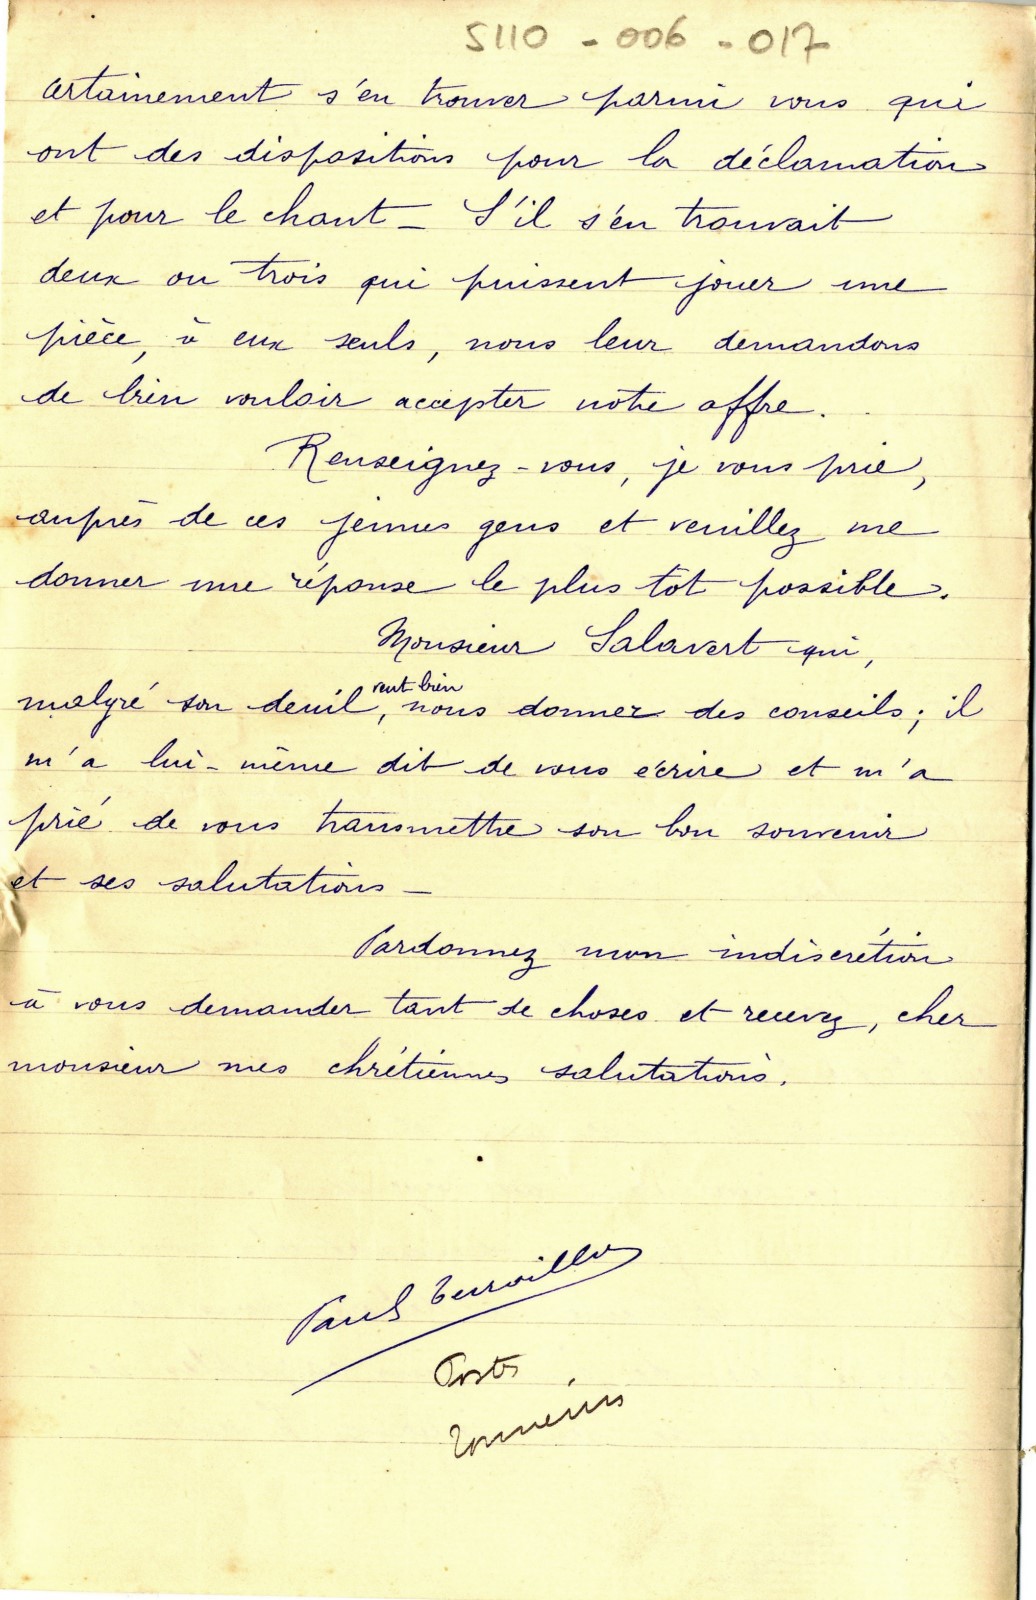 5110 - 006 - 017
certainement s'en trouver parmi vous qui
ont des dispositions pour la déclamation
et pour le chant _ S'il s'en trouvait
deux ou trois qui puissent jouer une
pièce, à eux seuls, nous leur demandons
de bien vouloir accepter notre offre.
Renseignez-vous, je vous prie,
auprès de ces jeunes gens et veuillez me
donner une réponse le plus tot possible.
Monsieur Salavert qui,
veut bien
malgré son deuil, nous donner des conseils; il
m'a lui-même dit de vous écrire et m'a
prié de vous transmettre son bon souvenir
et ses salutations _
Pardonnez mon indiscrétion
à vous demander tant de choses et recevez, cher
monsieur mes chrétiennes salutations.
Paul
Poste